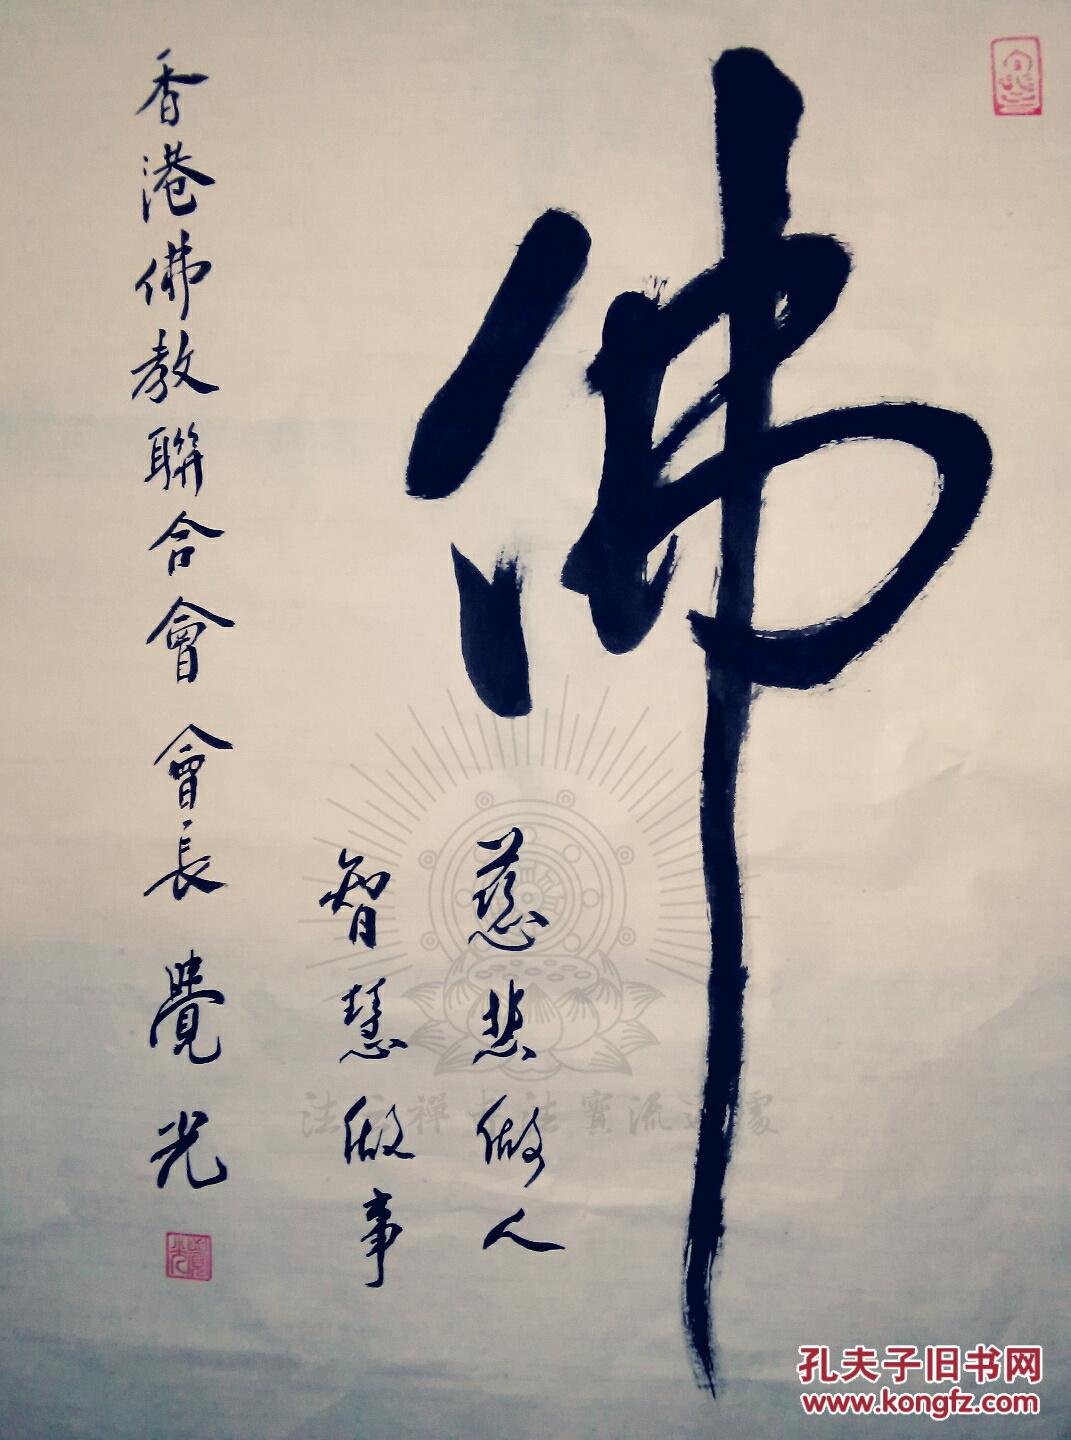 佛
慈悲做人
智慧做事
香港佛教聯合會會長 覺光
覺光
孔夫子旧书网
www.kongfz.com